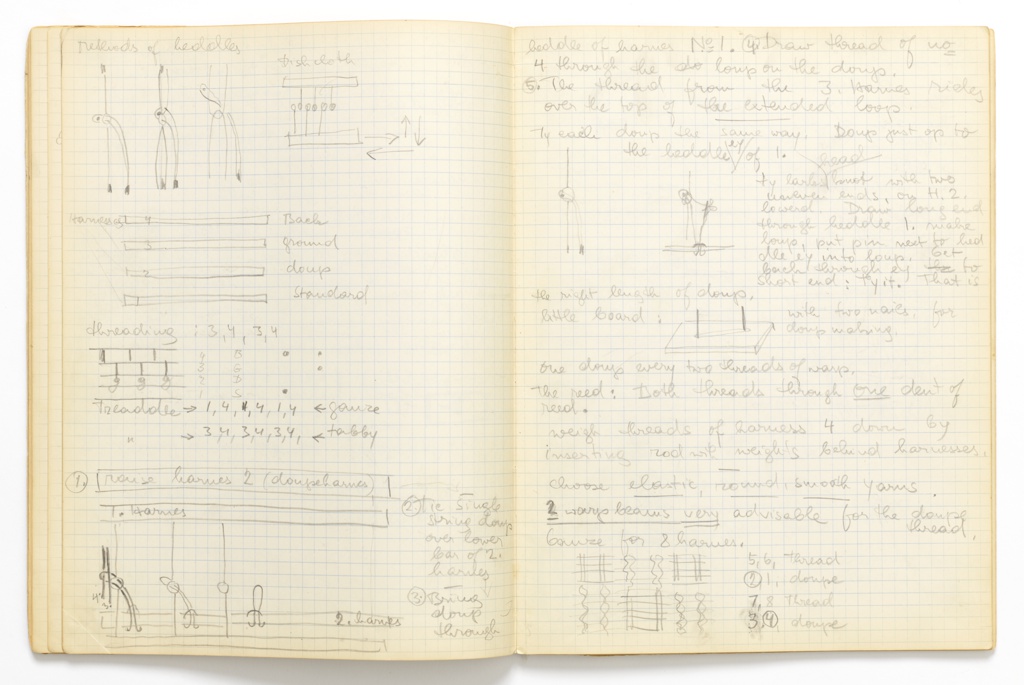 Methods of heddles
dishcloth
Harness 4 Back
3 ground
2 doup
1 Standard
threading : 3,4, 3,4
Treaddle → 1,4, 1,4, 1,4 ← gauze
" → 3,4, 3,4, 3,4, ← tabby
1. raise harnes 2 (doupeharnes)
1. Harnes
2. harnes
2. Tie single
string doup
over lower
bar of 2.
harnes
3. Bring
doup
through
heddle of harnes No 1. 4. Draw thread of no
4 through the loup on the doup.
5. The thread from the 3. Harnes rides
over the top of the extended loop.
Ty each doup the same way. Doup just up to
the heddle ey of 1.
ty knot with two
uneven ends, on H. 2.
lowerd. Draw long end
through heddle 1. make
loup, put pin next to hed
dle ey into loup. Get
back through ey to
short end: Ty it. That is
the right length of doup.
little board: with two nails, for
doup making.
one doup every two threads of warp.
The reed: Both threads through one dent of
reed.
weigh threads of harness 4 down by
inserting rod wit weights behind harnesses.
choose elastic, round, smooth yarns.
2 warp beams very advisable for the doupe
thread.
Gauze for 8 harnes.
5,6, thread
2 1, doupe
7,8 thread
3,4 doupe